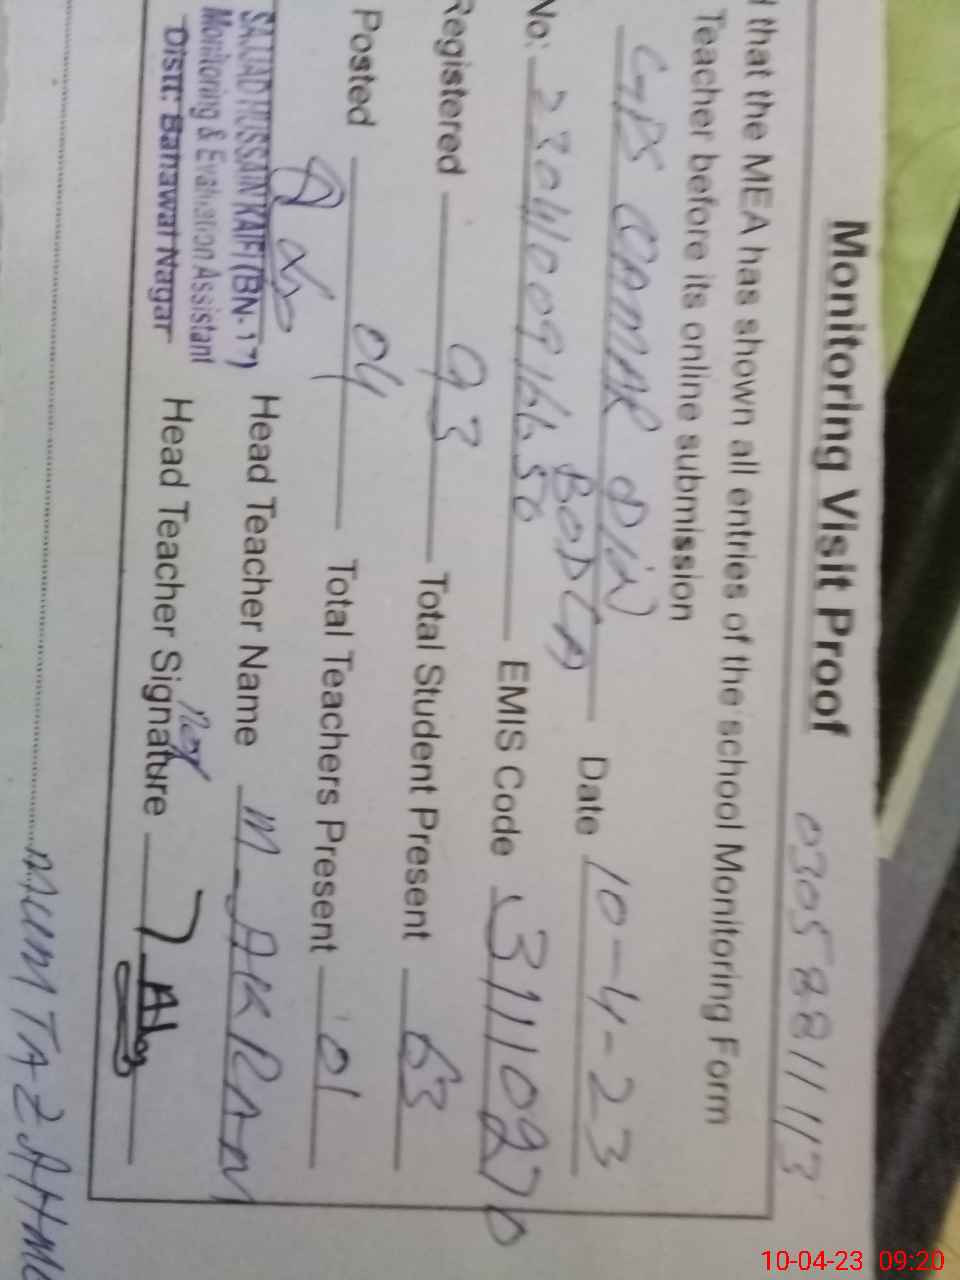 Monitoring Visit Proof 03058811113
that the MEA has shown all entries of the school Monitoring Form
Teacher before its online submission
GPS QAMAR DIN BODLA Date 10-4-23
No: EMIS Code 31110270
Registered 93 Total Student Present 63
Posted 04 Total Teachers Present 01
SAJJAD HUSSAIN KAIFI (BN-17) Head Teacher Name M-AKRAM
Monitoring & Evaluation Assistant
Distt: Bahawal Nagar Head Teacher Signature
MUMTAZ AHME
10-04-23 09:20